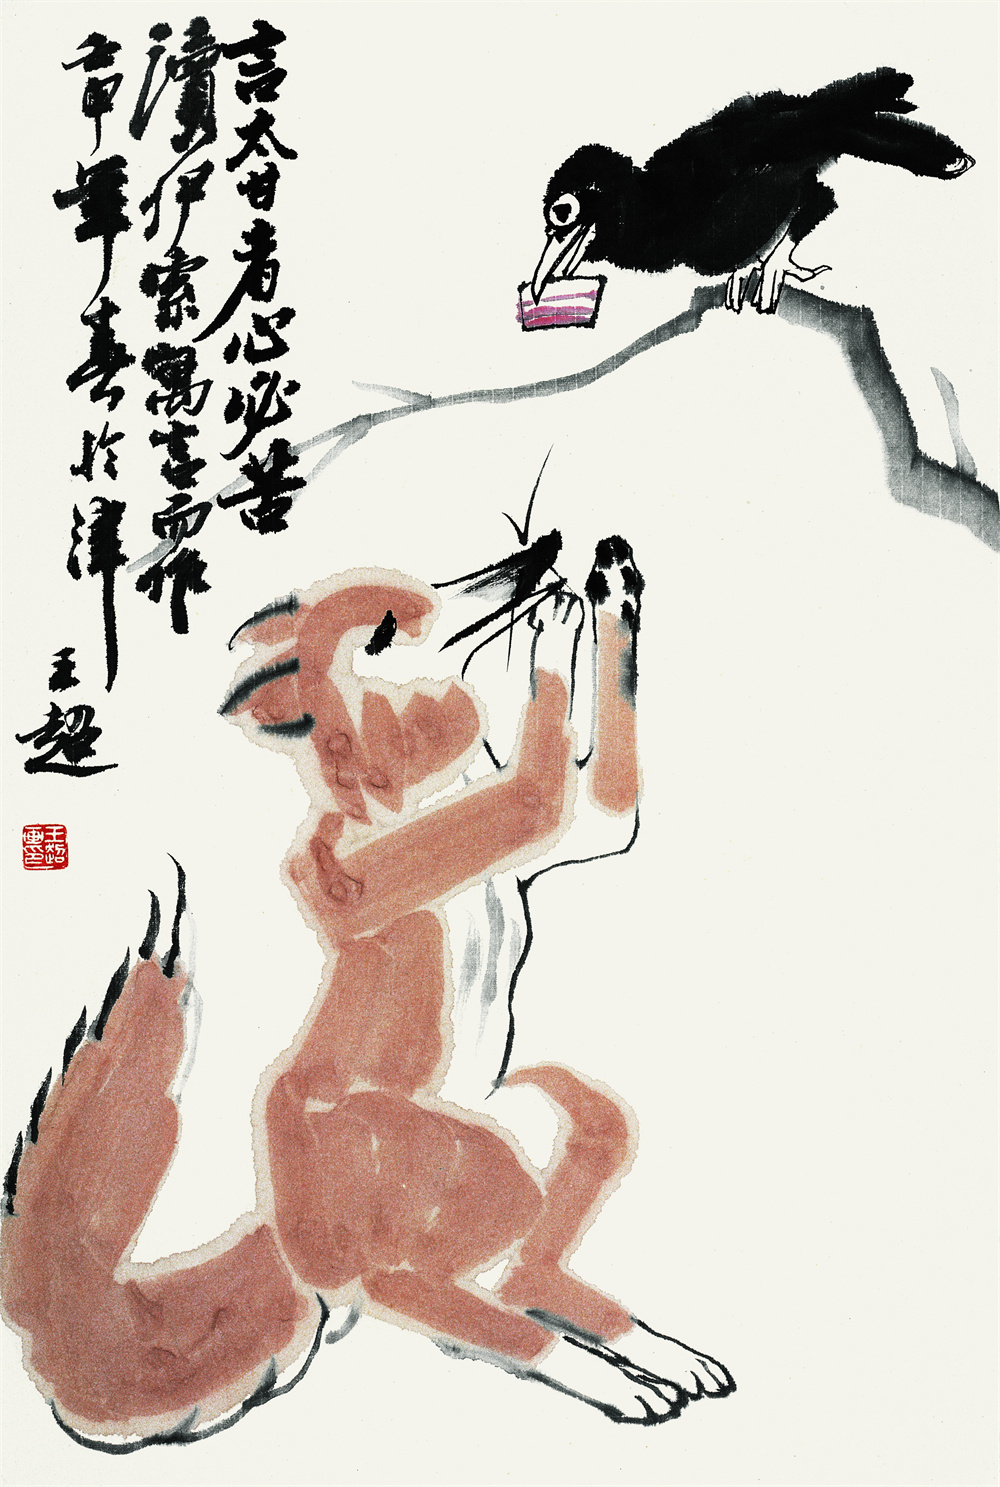 言太甘者心必苦
讀伊索寓言而作
壬申年春於津
王超
王超